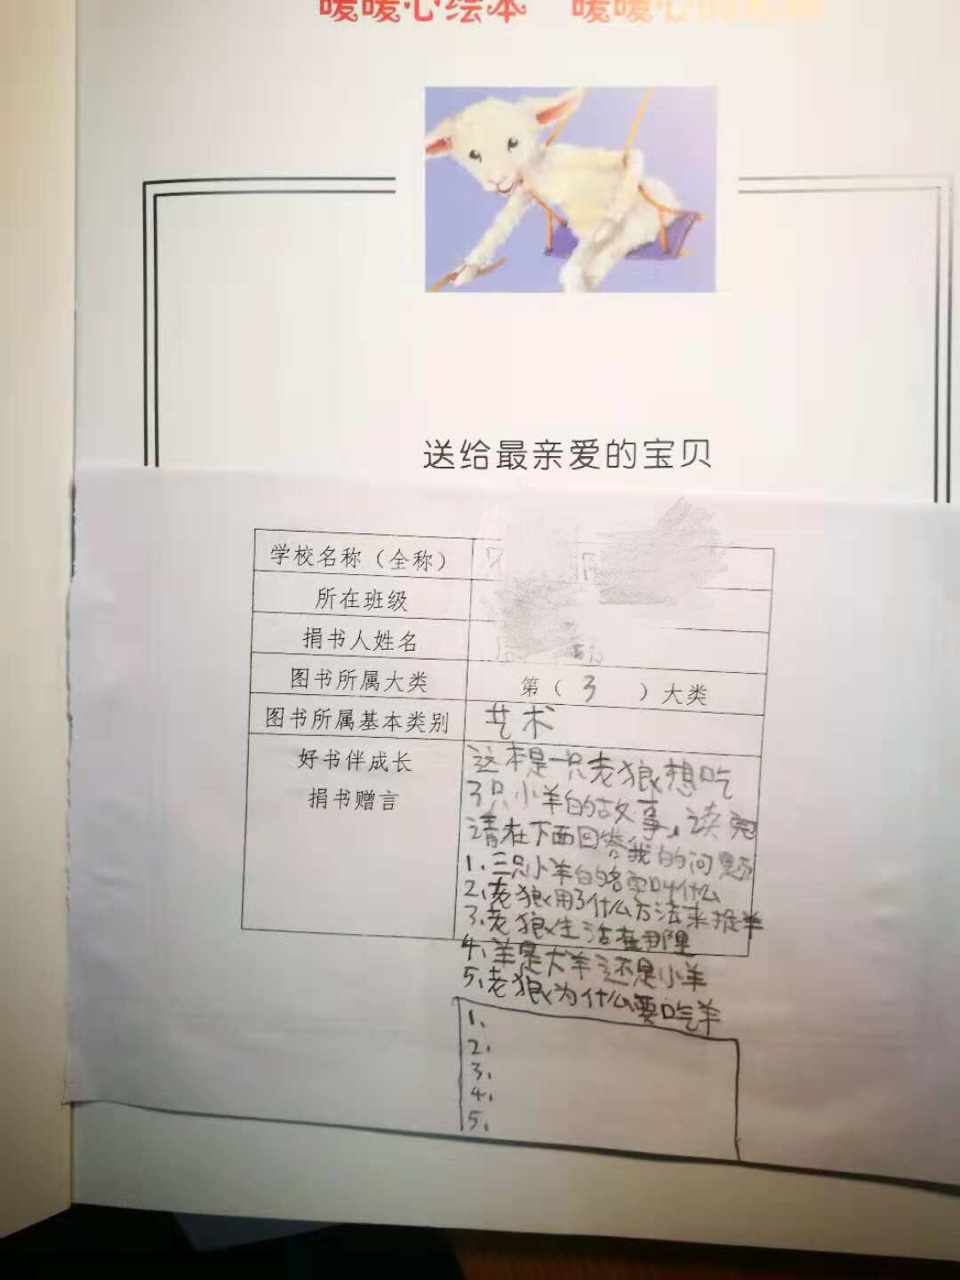 暖暖心绘本 暖暖心
送给最亲爱的宝贝
学校名称（全称）
所在班级
捐书人姓名
图书所属大类 第（ 3 ）大类
图书所属基本类别 艺术
好书伴成长
捐书赠言
这本是一只老狼想吃
3只小羊的故事，读完
请在下面回答我的问题
1、三只小羊的名字叫什么
2、老狼用了什么方法来捉羊
3、老狼生活在那里
4、羊是大羊还是小羊
5、老狼为什么要吃羊
1、
2、
3、
4、
5、